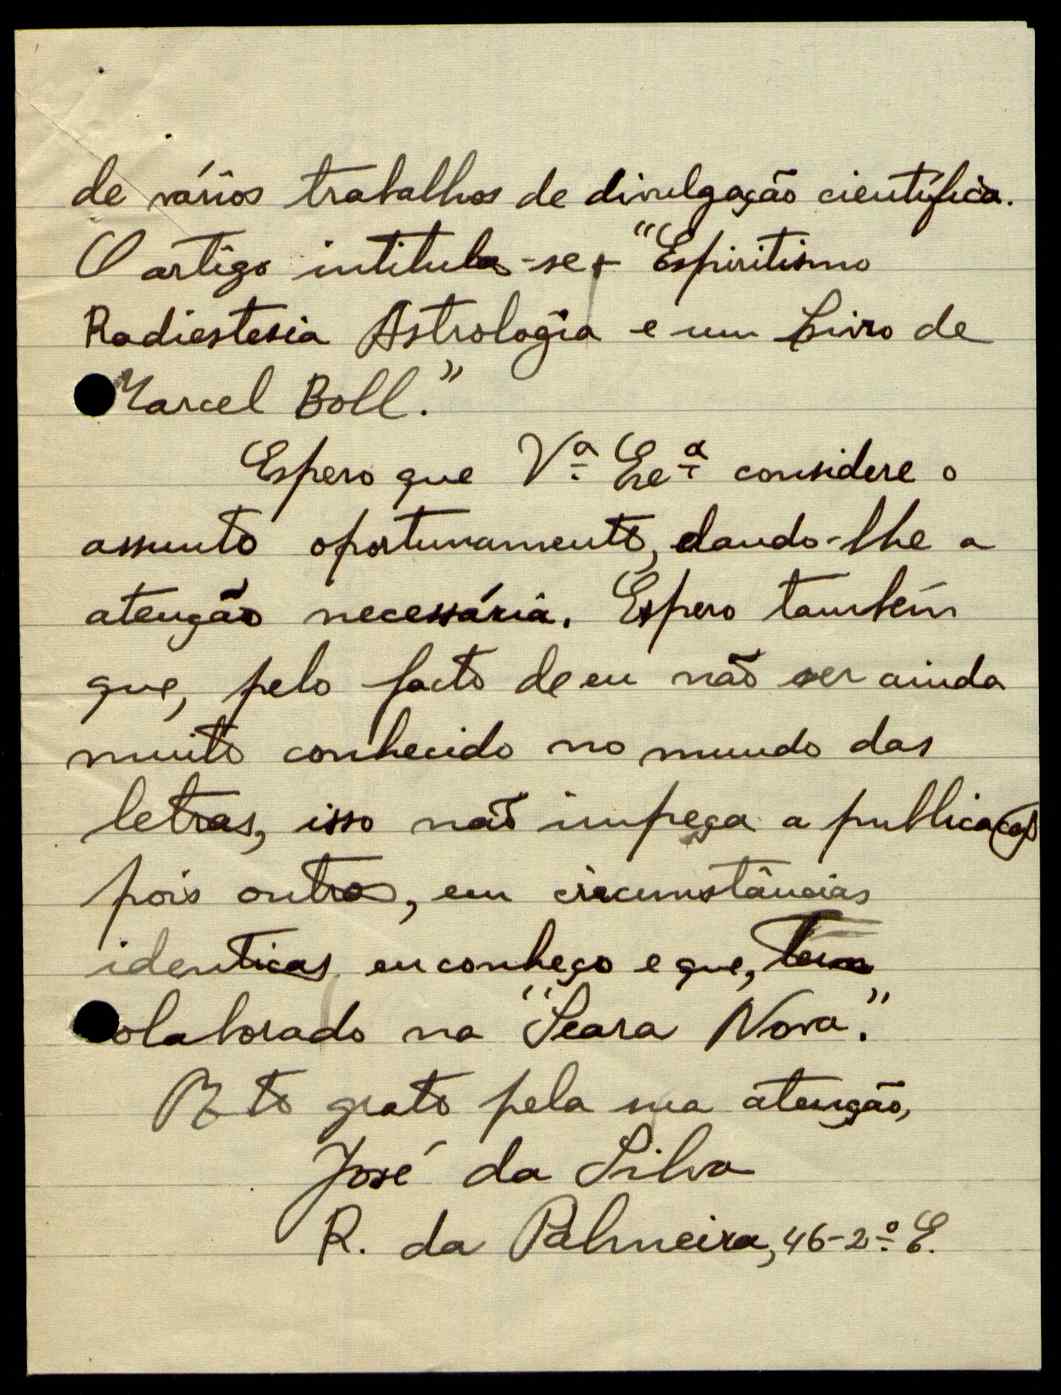 de vários trabalhos de divulgação científica.
O artigo intitula-se "Espiritismo
Radiestesia Astrologia e um Livro de
Marcel Boll."
Espero que Vª Exª considere o
assunto oportunamente, dando-lhe a
atenção necessária. Espero também
que, pelo facto de eu não ser ainda
muito conhecido no mundo das
letras, isso não impeça a publicação
pois outros, em circunstâncias
identicas eu conheço e que, tem
colaborado na "Seara Nova."
Mto grato pela sua atenção,
José da Silva
R. da Palmeira, 46-2º E.